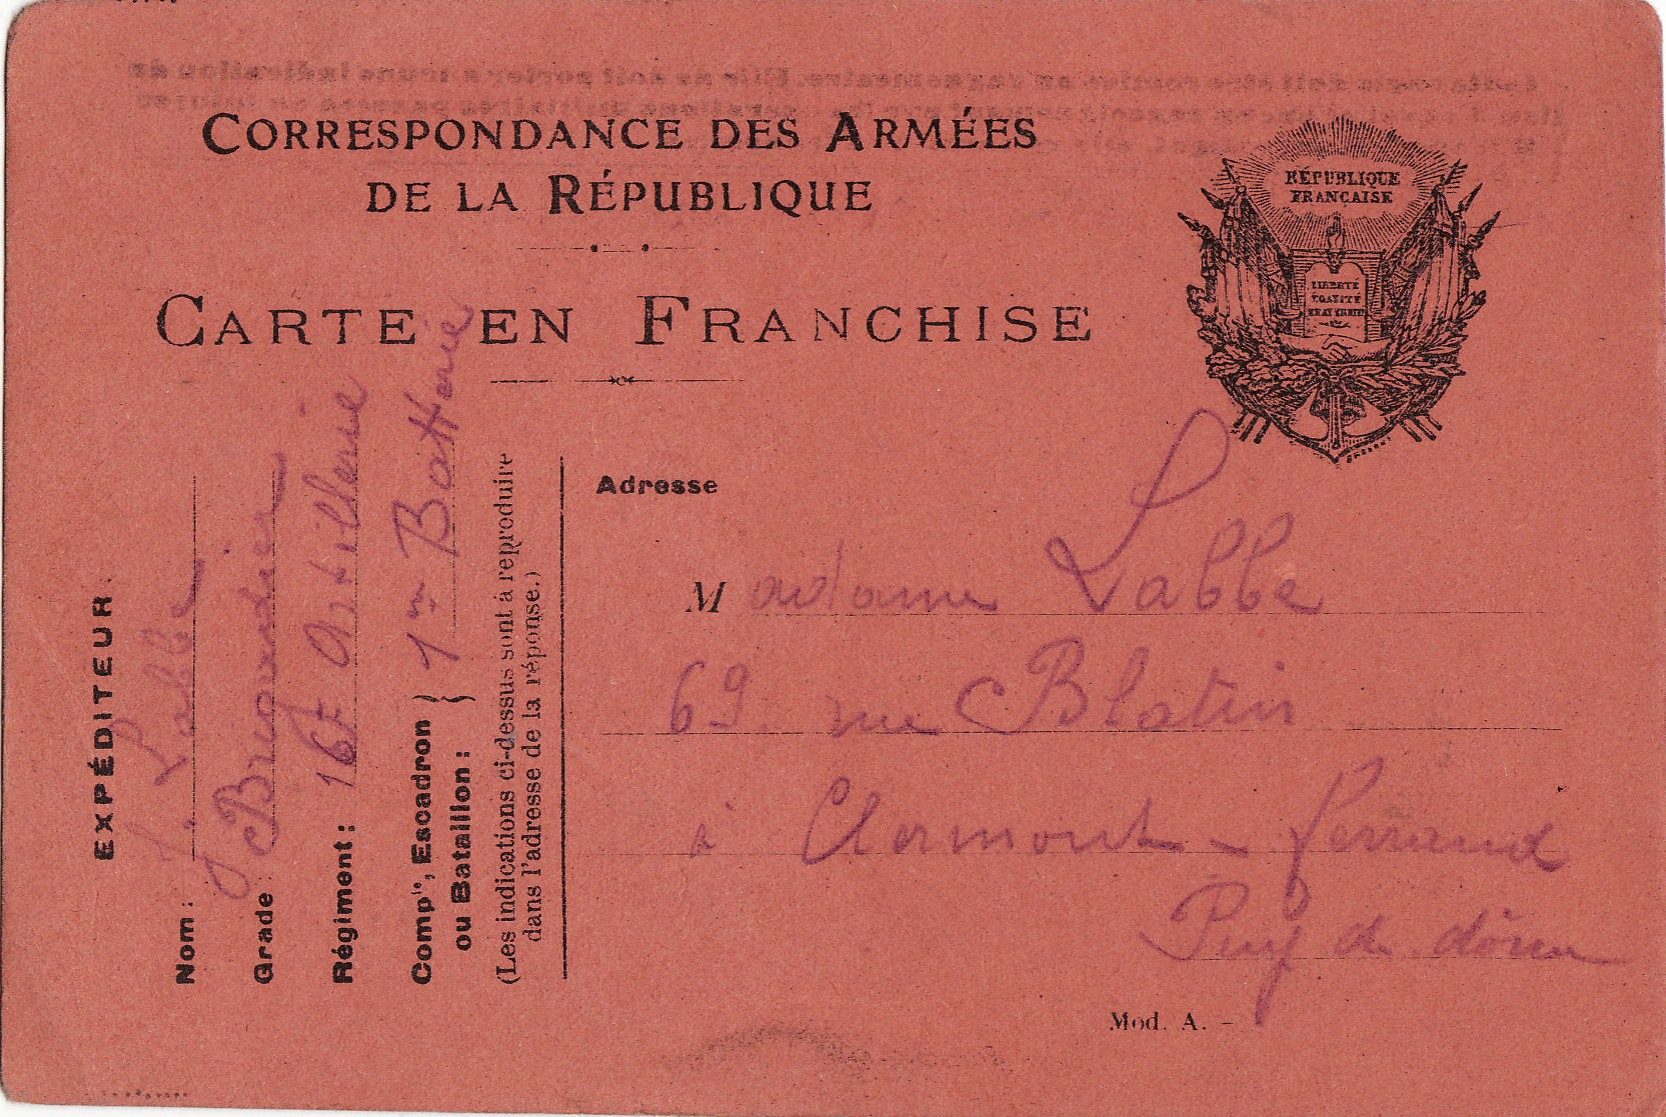 CORRESPONDANCE DES ARMÉES
DE LA RÉPUBLIQUE
CARTE EN FRANCHISE
RÉPUBLIQUE
FRANÇAISE
LIBERTÉ
ÉGALITÉ
FRATERNITÉ
EXPÉDITEUR
Nom : Labbe
Grade : Brigadier
Régiment : 16E Artillerie
Comp^ie, Escadron
ou Bataillon : } 1re Batterie
(Les indications ci-dessus sont à reproduire
dans l'adresse de la réponse.)
Adresse
Madame Labbe
69 rue Blatin
à Clermont-Ferrand
Puy de dôme
Mod. A. -